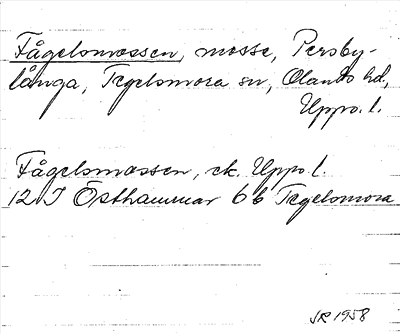 Fågelomossen, mosse, Persby-
långa, Tegelsmora sn, Olands hd,
Upps. l.
Fågelsmossen, ek. Upps. l.
12 I Östhammar 6 b Tegelsmora
SR 1958